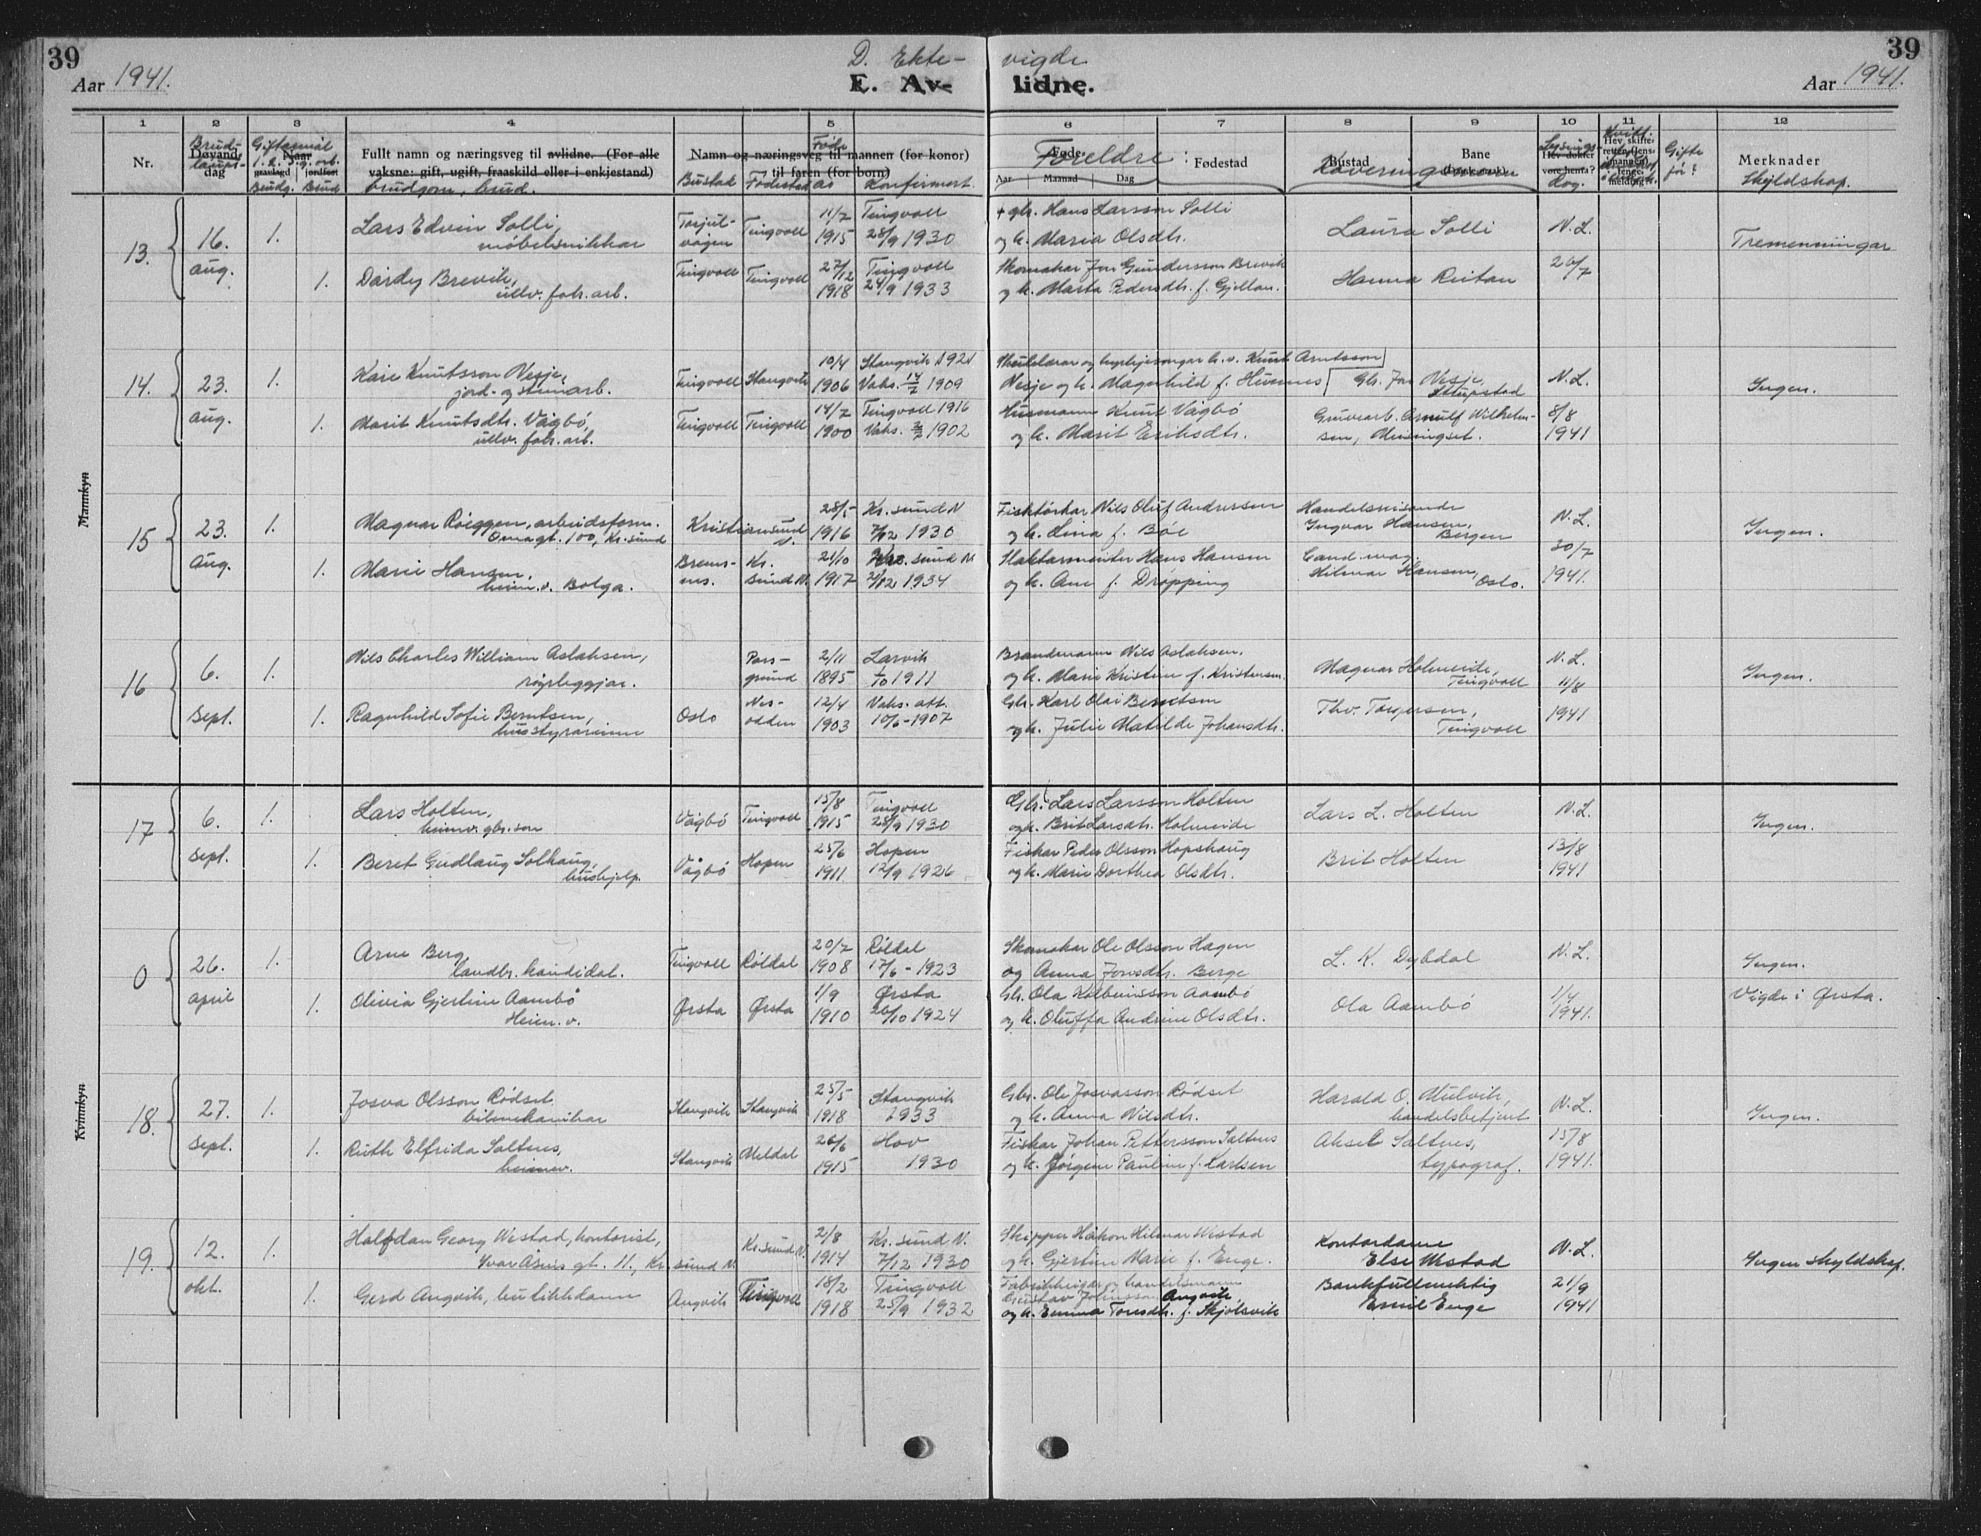 39
39
D. Ekte- vigde
Aar 1941.
E. Av- lidne.
Aar 1941.
1 2 3 4 5 6 7 8 9 10 11 12
Nr.
Brud-
laups-
dag
Giftarmål
Brudg. Brud
Fullt namn og næringsveg til avlidne. (For alle
vaksne: gift, ugift, fraaskild eller i enkjestand)
brudgom, brud.
Namn og næringsveg til mannen (for konor)
til faren (for born)
Bustad Fødestad Føde aar Konfirmert
Foreldre:
Føde-
Aar Maanad Dag
Fødestad
Bustad
Bane
Merknader
Skyldskap.
Gifte
før?
Mannkyn
13.
16. aug.
1.
Lars Edvin Solli,
møbelsnikkar
Torjul-
vågen
Tingvoll
11/2 1915
Tingvoll 28/9 1930
+ gbr. Hans Larsson Solli
og k. Maria Olsdtr.
Laura Solli
N.L.
26/7
Tremenningar
1.
Dordy Brevik,
ullv. fabr. arb.
Tingvoll
Tingvoll
27/12 1918
Tingvoll 24/9 1933
Skomakar Jon Gundersson Brevik
og k. Marta Pedersdtr. f. Gjeldan.
Hanna Reitan
14.
23. aug.
1.
Kåre Knutsson Nesje,
jord- og steinarb.
Tingvoll
Stangvik
10/4 1906
Stangvik 1921
Vaks. 14/2 1909
Skulelærar og kyrkjesongar k. v. Knut Arntsson
Nesje og k. Magnhild f. Hevnnes
Gbr. Jon Nesje,
N.L.
8/8
1941
Ingen.
1.
Marit Knutsdtr. Vågbø,
ullv. fabr. arb.
Tingvoll
Tingvoll
14/2 1900
Tingvoll 1916
Vaks. 1902
Husmann Knut Vågbø
og k. Marit Eriksdtr.
Gruvearb. Arnulf Wilhelm-
sen, Meisingset.
15
23. Aug.
1.
Magnar Røeggen, arbeidsform.
Omagt. 100, Kr.sund
Kristiansund N.
28/5 1916
Kr. sund N
7/12 1930
Fisktørkar Nils Oluf Andreassen
og k. Lina f. Bøe
Handelsreisande
Ingvar Hansen,
Bergen
N.L.
30/7
1941.
Ingen.
1.
Marie Hansen,
heim. v. Bolga.
Brems-
nes.
Kr.
sund N.
21/10 1917
Kr. sund N.
2/12 1934
Havnearmeister Hans Hansen
og k. Ane f. Dropping
Cand. mag.
Hilmar Hansen,
Oslo.
16
6. Sept.
1.
Nils Charles William Aslaksen,
røyrleggjar.
Pors-
grund
2/11 1895
Larvik
1/10 1911
Brandmann Nils Aslaksen.
og k. Marie Kristine f. Kristensen
Magnar Holmeide,
Tingvoll
N.L.
11/8
1941
Ingen.
1.
Ragnhild Sofie Berntsen,
husstyrarinne
Oslo
Nes-
odden
12/4 1903
Vaks. att.
10/6-1907
Gbr. Karl Olai Berntsen
og k. Julie Matilde Johansdtr.
Thv. Torgersen,
Tingvoll
17
6. Sept.
1.
Lars Holten,
heimv. gbr. son
Vågbø
Tingvoll
15/8 1915
Tingvoll
28/9 1930
Gbr. Lars Larsson Holten
og k. Brit Larsdtr. Holmeide
Lars L. Holten
N.L.
13/8
1941
Ingen.
1.
Beret Gudlaug Solhaug,
hushjelp.
Vågbø
Hopen
25/6 1911.
Hopen
12/9 1926
Fiskar Peder Olsson Hopshaug
og k. Marie Dorthea Olsdtr.
Brit Holten
Kvinnkyn
0
26. april
1.
Arne Berg
landbr. kandidat.
Tingvoll
Røldal
20/2 1908
Røldal
17/6 - 1923
Skomakar Ole Olsson Hagen
og Anna Jonsdtr. Berge
L. K. Dybdal
N.L.
1/4
1941.
Ingen.
Vigde i Ørsta.
1.
Olivia Gjertine Aambø
Heim. v.
Ørsta
Ørsta
1/9 1910
Ørsta
26/10 1924
Gbr. Ola Kolbeinsson Aambø
og k. Oluffa Andrine Olsdtr.
Ola Aambø
18.
27. Sept.
1.
Josva Olsson Rødset
bilmekanikar
Stangvik
Stangvik
25/5 1918
Stangvik
1933
Gbr. Ole Josvasson Rødset
og k. Anna Nilsdtr.
Harald O. Mulvik,
handelsbetjent
N.L.
15/8
1941.
Ingen.
1.
Ruth Elfrida Saltnes,
heimev.
Stangvik
Meldal
26/6 1915
Hov
1930
Fiskar Johan Pettersson Saltnes
og k. Jørgine Pauline f. Karlsen
Aksel Saltnes,
typograf.
19.
12. okt.
1.
Halfdan Georg Wistad, kontorist,
Ivar Åsens gt. 11., Kr. sund N.
Kr. sund N.
2/8 1914
Kr. sund N.
7/12 1930
Skipper Håkon Hilmar Wistad
og k. Gjertine Marie f. Enge.
Kontordame
Else Wistad
N.L.
21/9
1941
Ingen skyldskap.
1.
Gerd Angvik, butikkdame
Angvik
Tingvoll
18/2 1918
Tingvoll
25/9 1932
Fabrikkeigar og handelsmann
Gustav Johansson Angvik
og k. Emma Toresdtr. f. Skjølsvik
Bankfullmektig
Emil Enge